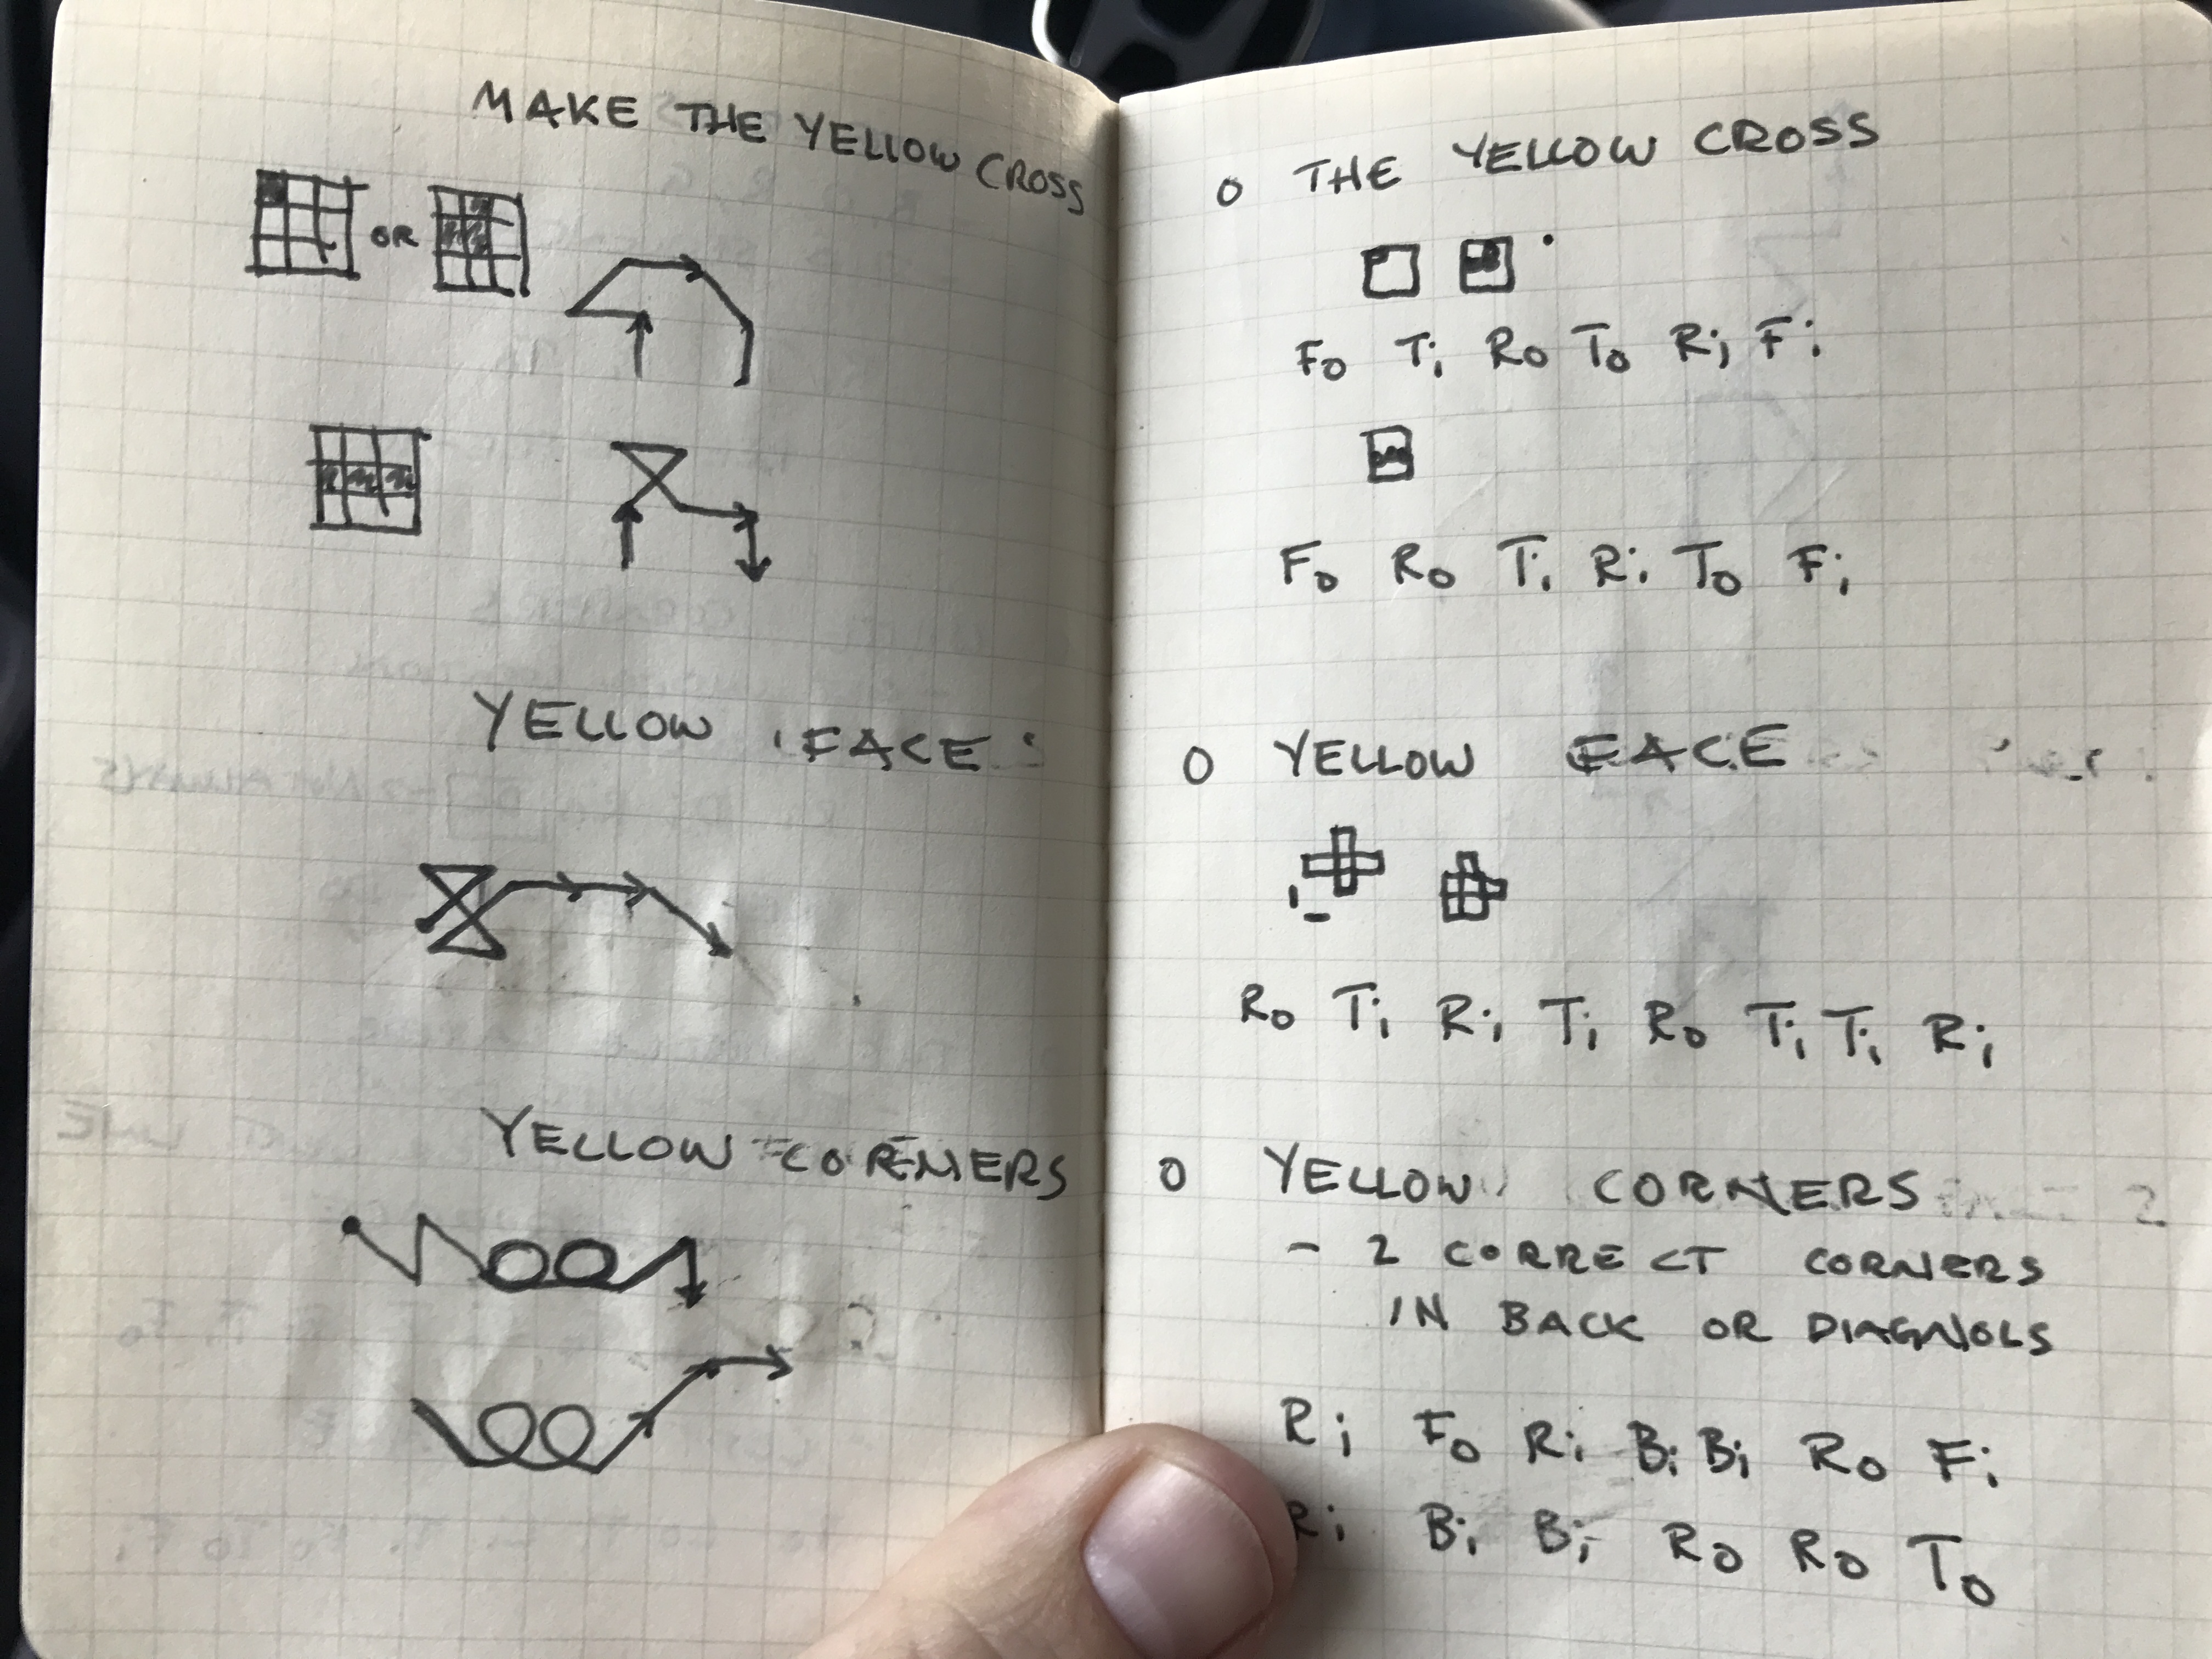 MAKE THE YELLOW CROSS
OR
YELLOW FACE
YELLOW CORNERS
O THE YELLOW CROSS
Fo Ti Ro To Ri Fi
Fo Ro Ti Ri To Fi
O YELLOW FACE
Ro Ti Ri Ti Ro Ti Ti Ri
O YELLOW CORNERS
- 2 CORRECT CORNERS
IN BACK OR DIAGNOLS
Ri Fo Ri Bi Bi Ro Fi
Ri Bi Bi Ro Ro To